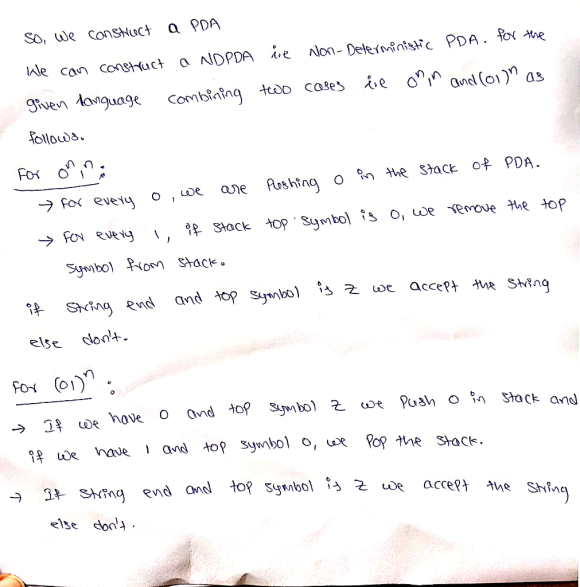 So, we construct a PDA
We can construct a NDPDA i.e Non-Deterministic PDA. for the
given language combining two cases i.e 0ⁿ1ⁿ and (01)ⁿ as
follows.
For 0ⁿ1ⁿ :
→ For every 0, we are Pushing 0 in the stack of PDA.
→ For every 1, if stack top symbol is 0, we remove the top
symbol from stack.
if string end and top symbol is Z we accept the string
else don't.
For (01)ⁿ :
→ If we have 0 and top symbol Z we Push 0 in stack and
if we have 1 and top symbol 0, we Pop the stack.
→ If string end and top symbol is Z we accept the string
else don't.